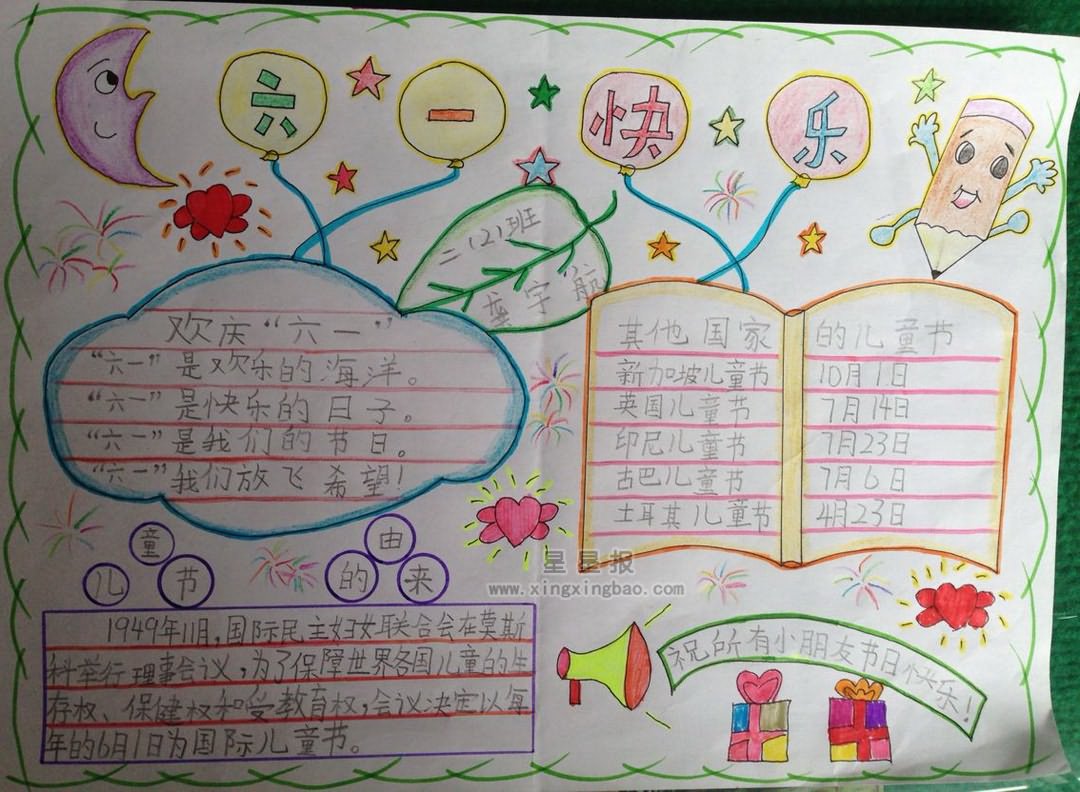 六一快乐
二(2)班
龚宇航
欢庆“六一”
“六一”是欢乐的海洋。
“六一”是快乐的日子。
“六一”是我们的节日。
“六一”我们放飞希望！
其他国家的儿童节
新加坡儿童节 10月1日
英国儿童节 7月14日
印尼儿童节 7月23日
古巴儿童节 7月6日
土耳其儿童节 4月23日
儿童节的由来
1949年11月,国际民主妇女联合会在莫斯
科举行理事会议,为了保障世界各国儿童的生
存权、保健权和受教育权,会议决定以每
年的6月1日为国际儿童节。
祝所有小朋友节日快乐！
星星报
www.xingxingbao.com